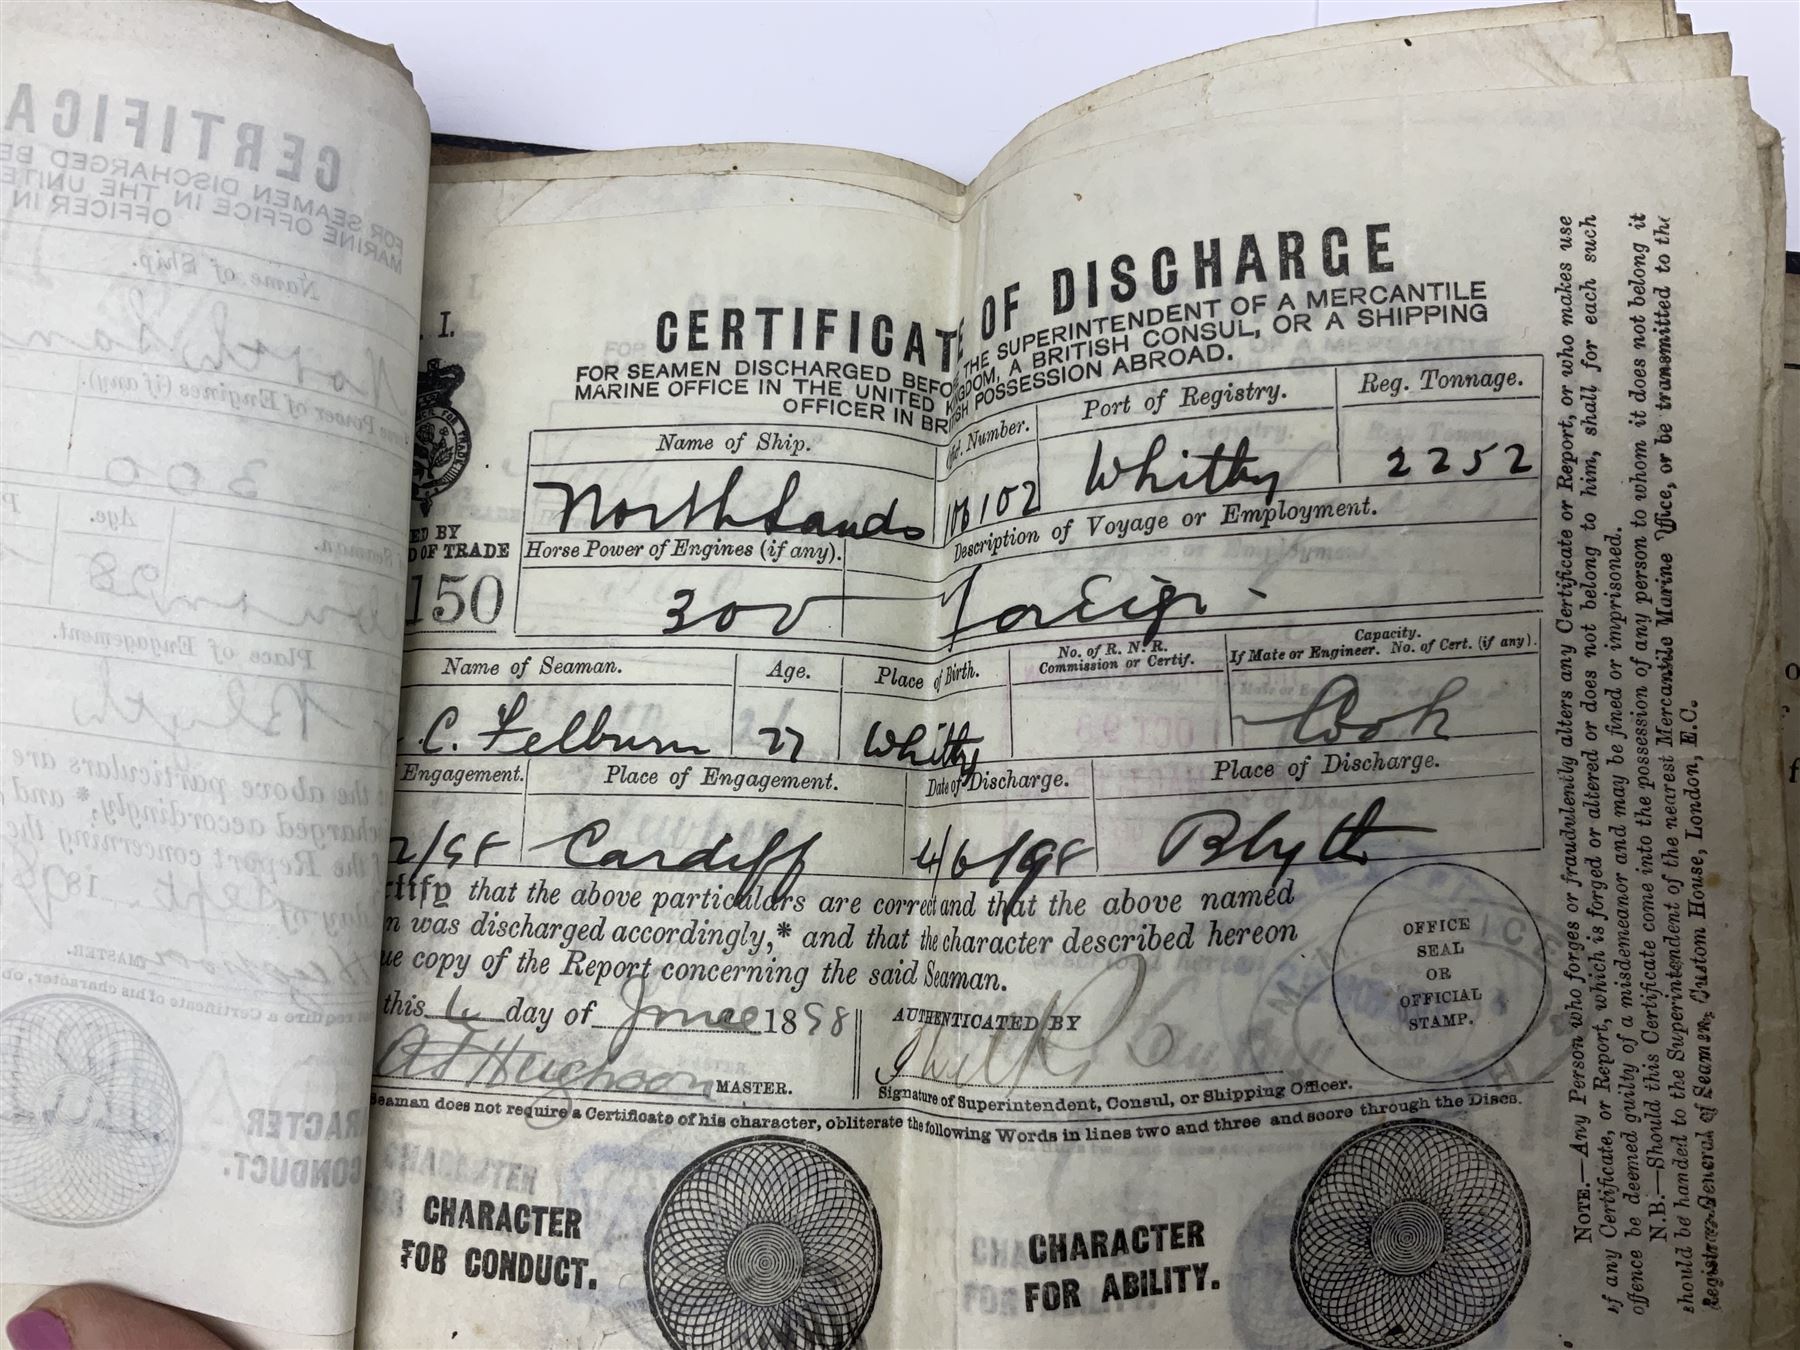 CERTIFICATE OF DISCHARGE
FOR SEAMEN DISCHARGED BEFORE THE SUPERINTENDENT OF A MERCANTILE
MARINE OFFICE IN THE UNITED KINGDOM, A BRITISH CONSUL, OR A SHIPPING
OFFICER IN BRITISH POSSESSION ABROAD.
I.
ED BY
D OF TRADE
150
Name of Ship. Offl. Number. Port of Registry. Reg. Tonnage.
North Sands 106102 Whitby 2252
Horse Power of Engines (if any). Description of Voyage or Employment.
300 Foreign
Name of Seaman. Age. Place of Birth. No. of R. N. R. Commission or Certif. Capacity. If Mate or Engineer. No. of Cert. (if any).
C. Felburn 27 Whitby Cook
Engagement. Place of Engagement. Date of Discharge. Place of Discharge.
2/98 Cardiff 4/6/98 Blyth
rtify that the above particulars are correct and that the above named
n was discharged accordingly,* and that the character described hereon
ue copy of the Report concerning the said Seaman.
this 6 day of June 1898
AUTHENTICATED BY
MASTER.
Signature of Superintendent, Consul, or Shipping Officer.
OFFICE
SEAL
OR
OFFICIAL
STAMP.
Seaman does not require a Certificate of his character, obliterate the following Words in lines two and three and score through the Discs.
CHARACTER
FOR CONDUCT.
CHARACTER
FOR ABILITY.
NOTE.—Any Person who forges or fraudulently alters any Certificate or Report, or who makes use
of any Certificate, or Report, which is forged or altered or does not belong to him, shall for each such
offence be deemed guilty of a misdemeanor and may be fined or imprisoned.
N.B.—Should this Certificate come into the possession of any person to whom it does not belong it
should be handed to the Superintendent of the nearest Mercantile Marine Office, or be transmitted to the
Registrar-General of Seamen, Custom House, London, E.C.